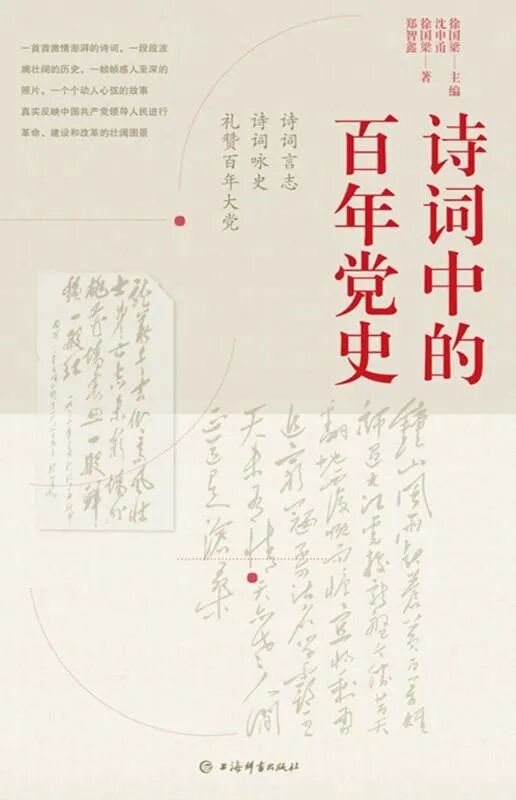 徐国梁——主编
沈申甬
徐国梁——著
郑智鑫
诗词中的
百年党史
诗词言志
诗词咏史
礼赞百年大党
一首首激情澎湃的诗词，一段段波
澜壮阔的历史，一帧帧感人至深的
照片，一个个动人心弦的故事
真实反映中国共产党领导人民进行
革命、建设和改革的壮阔图景
龙华千古仰高风壮
士身亡志未穷墙外
桃花墙里血一般鲜
艳一般红
鐘山風雨起蒼黄百万雄
師过大江虎踞龍盤今勝昔天
翻地覆慨而慷宜將剩勇
追窮寇不可沽名学霸王
天若有情天亦老人間
正道是滄桑
上海辞书出版社